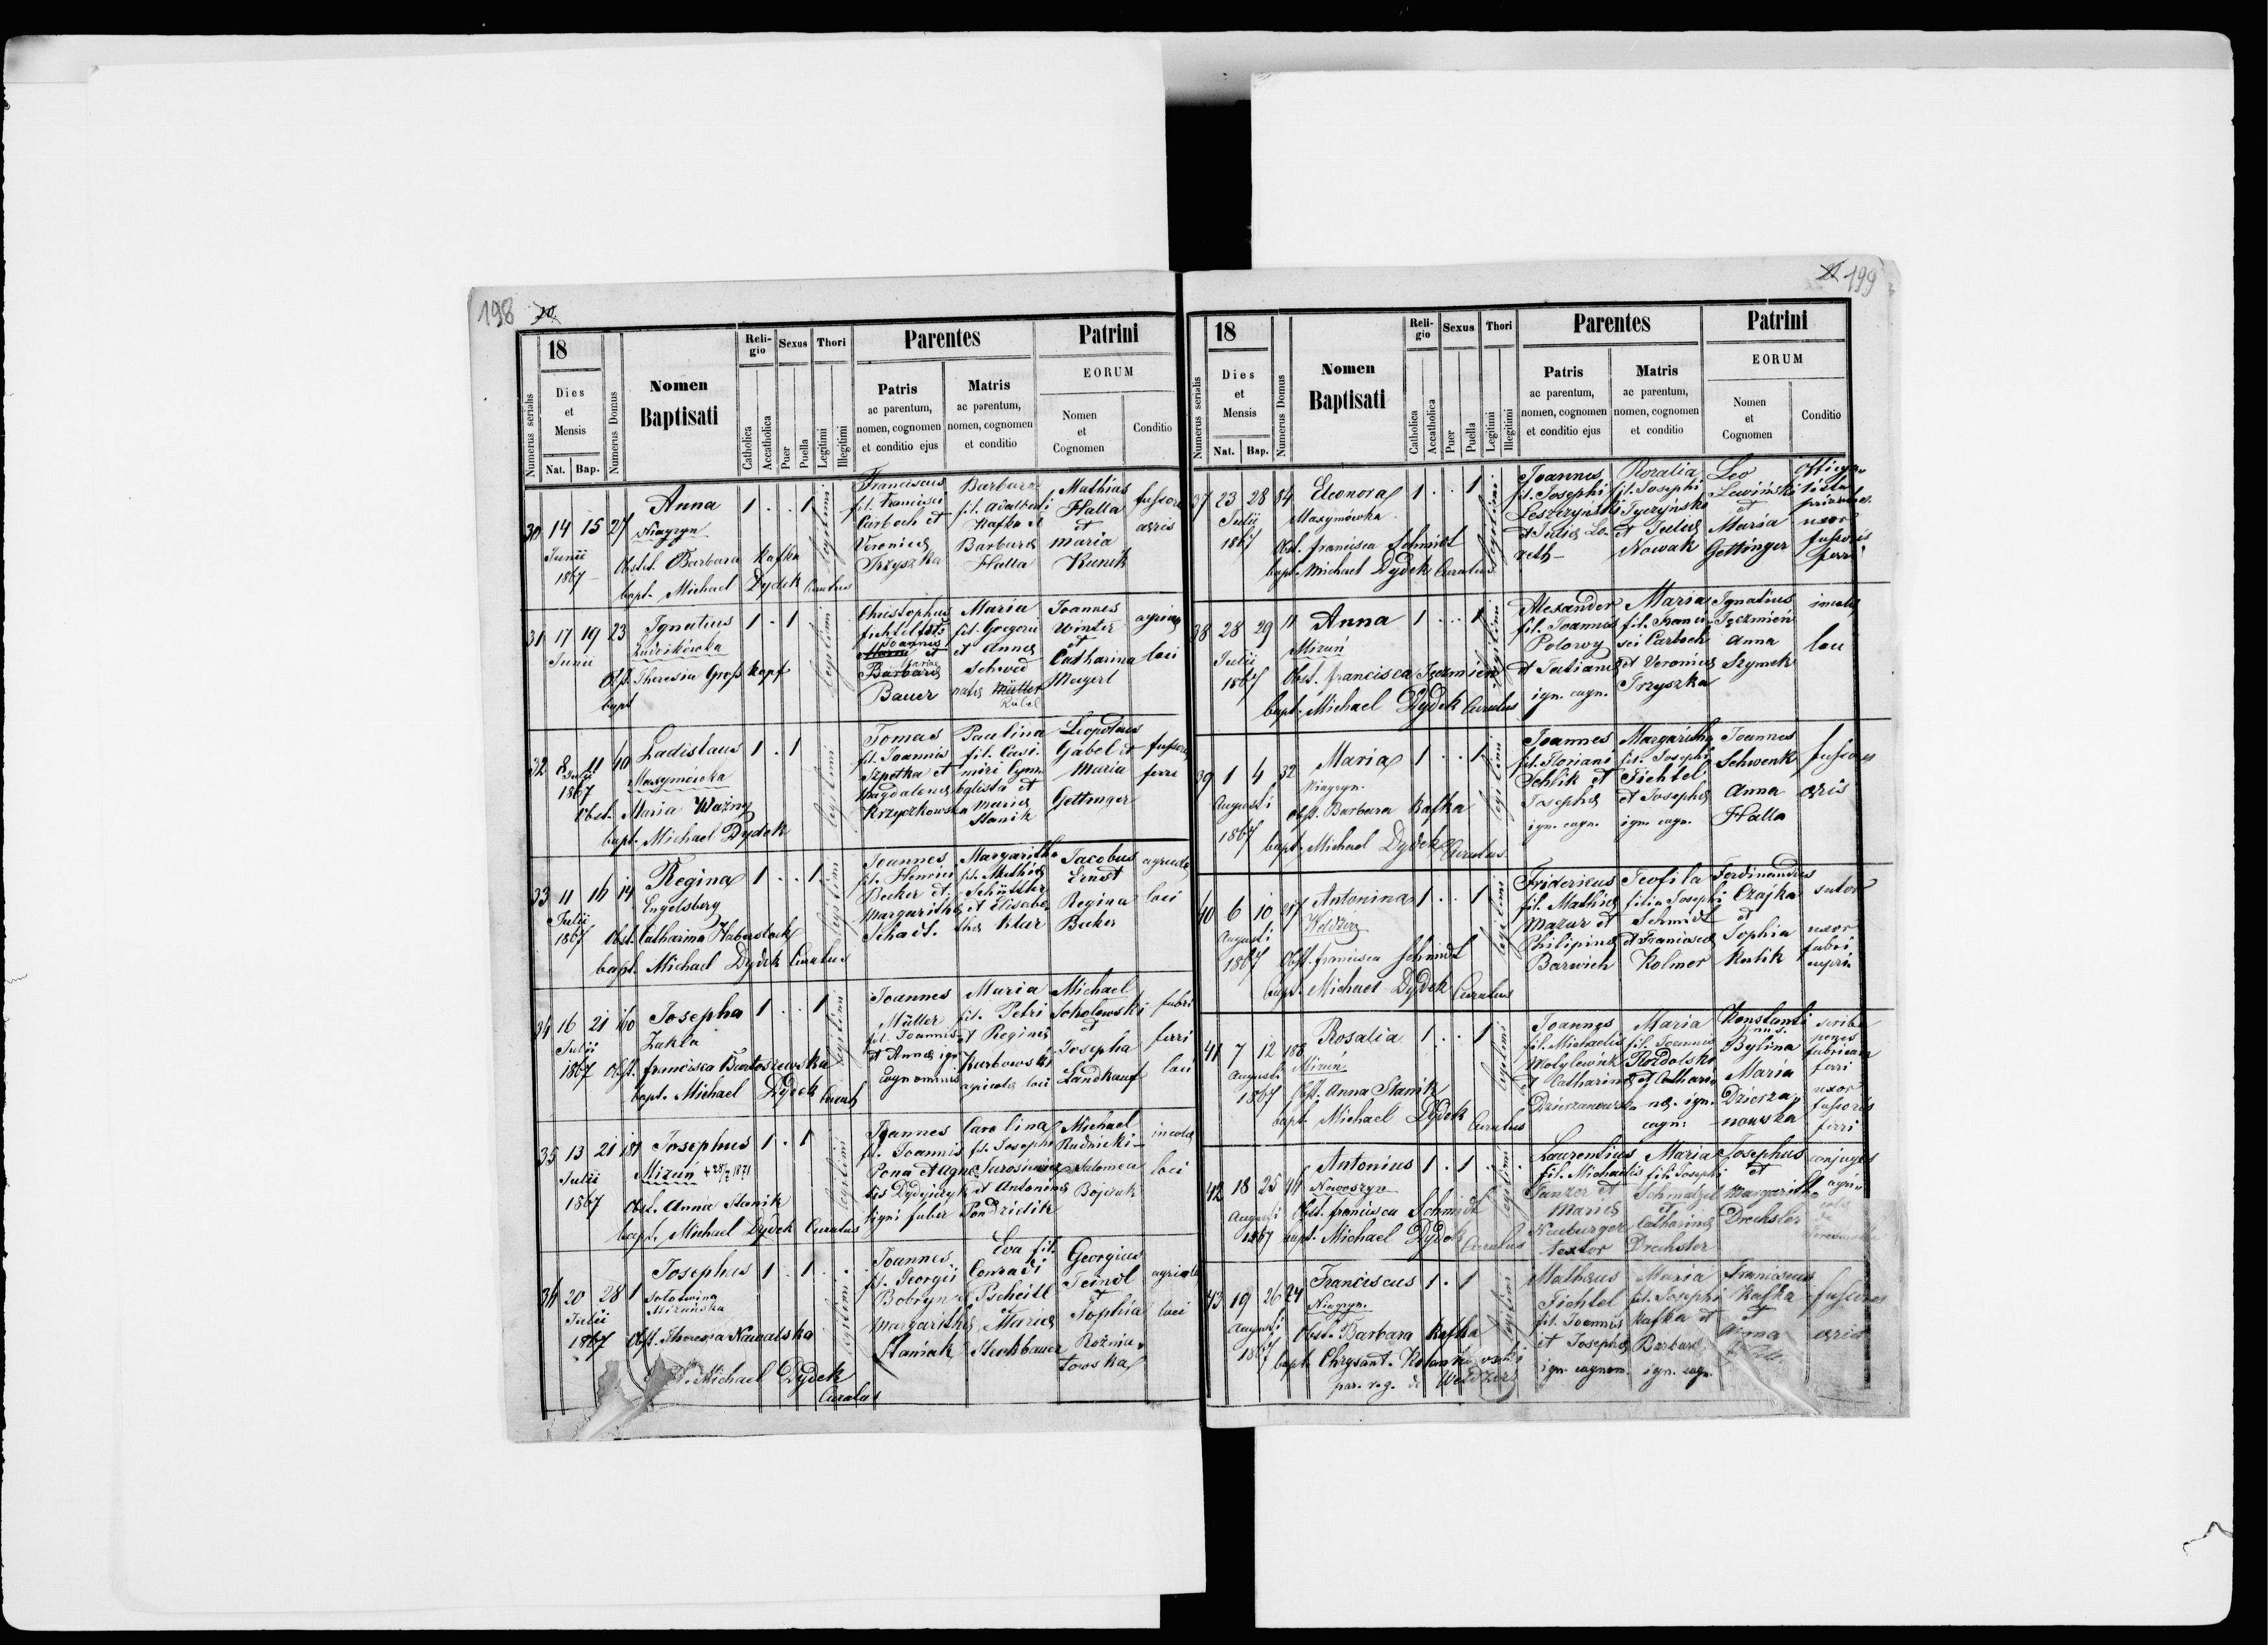 198
18
Numerus serialis
Dies
et
Mensis
Nat. Bap.
Numerus Domus
Nomen
Baptisati
Reli-
gio
Catholica
Accatholica
Sexus
Puer
Puella
Thori
Legitimi
Illegitimi
Parentes
Patris
ac parentum,
nomen, cognomen
et conditio ejus
Matris
ac parentum,
nomen, cognomen
et conditio
Patrini
EORUM
Nomen
et
Cognomen
Conditio
30 14 15 27 Anna 1 . . 1 legitimi
Junii
1867
Niagryn
Obstet. Barbara Kafka
bapt. Michael Dydek Curatus
Franciscus
fil. Francisci
Carboch et
Veronica
Trzyszka
Barbara
fil. Adalberti
Kafka et
Barbara
Halla
Mathias
Halla
et
Maria
Kunik
fusores
aeris
31 17 19 23 Ignatius 1 . 1 legitimi
Junii
Ludwikówka
Obst. Theresia Groß Kopf
bapt
Christophus
Fichtel
Joannes
Barbara
Bauer
Maria
fil. Gregorii
et Anna
Schwed
nata Müller
Joannes
Winter
et
Catharina
Meyerl
loci
32 8 11 10 Ladislaus 1 . 1 legitimi
Julii
1867
Maxymówka
Obst. Maria Ważny
bapt. Michael Dydek
Tomas
fil. Joannis
Szpotka et
Magdalena
Krzyczkowska
Paulina
fil. Casi-
miri
et
Maria
Stanik
Leopoldus
Gabel et
Maria
Gettinger
ferri
33 11 16 14 Regina 1 . . 1 legitimi
Julii
1867
Engelsberg
Obst. Catharina Haberstock
bapt. Michael Dydek Curatus
Joannes
fil. Henrici
Becker et
Margaritha
Schadt.
Margaritha
fil. Mathia
Schüttler
et Elisabe-
tha Klar
Jacobus
Ernst
Regina
Becker
loci
34 16 21 160 Josepha 1 . . 1 legitimi
Julii
1867
Zakla
Obst. Francisca Bartoszewska
bapt. Michael Dydek Curatus
Joannes
Müller
fil. Joannis
et Anna ign.
cognominis
Maria
fil. Petri
et Regina
Karbowski
agricola loci
Michael
Sokolowski
et
Josepha
Landkauf
fabri
ferri
loci
35 13 21 181 Josephus 1 . 1 legitimi
Julii
1867
Mizuń
Obst. Anna Stanik
bapt. Michael Dydek Curatus
Joannes
fil. Joannis
Pona et Agne-
tis Dydyiczyk
ligni faber
Carolina
fil. Josephi
et Antonina
Pondzielik
Michael
Rudnicki
Salomea
Bojczuk
incola
loci
36 20 28 1 Josephus 1 . 1 . . legitimi
Julii
1867
Sołotwina
Mizuńska
Obst. Theresia Nawalska
Michael Dydek
Curatus
Joannes
fil. Georgii
Bobryn et
Margaritha
Staniak
Eva fil.
Conradi
Pscheitl
et
Maria
Stechbauer
Georgius
Teindl
et
Sophia
Rożnia-
towska
agricola
loci
199
18
Numerus serialis
Dies
et
Mensis
Nat. Bap.
Numerus Domus
Nomen
Baptisati
Reli-
gio
Catholica
Accatholica
Sexus
Puer
Puella
Thori
Legitimi
Illegitimi
Parentes
Patris
ac parentum,
nomen, cognomen
et conditio ejus
Matris
ac parentum,
nomen, cognomen
et conditio
Patrini
EORUM
Nomen
et
Cognomen
Conditio
37 23 28 84 Eleonora 1 . . 1 legitimi
Julii
1867
Maxymówka
Obst. Francisca Schmidt
bapt. Michael Dydek Curatus
Joannes
fil. Josephi
Leszczyński
et Julia Lo-
reth
Rozalia
fil. Josephi
Tyczyński
et Julia
Nowak
Leo
Lewiński
et
Maria
Gettinger
uxor
fusoris
ferri
38 28 29 11 Anna 1 . . . 1 legitimi
Julii
1867
Mizuń
Obst. Francisca Jęczmień
bapt. Michael Dydek Curatus
Alexander
fil. Joannis
Polowy
et Tatiana
ign. cogn.
Maria
fil. Franci-
sci Carboch
et Veronica
Trzyszka
Ignatius
Jęczmień
Anna
Szymek
incola
loci
39 1 4 32 Maria 1 . . 1 legitimi
Augusti
1867
Niagryn.
Obst. Barbara Kafka
bapt. Michael Dydek Curatus
Joannes
fil. Floriani
Schlik et
Josepha
ign. cogn.
Margaritha
fil. Josephi
Fichtel
et Josepha
ign. cogn.
Joannes
Schwenk
Anna
Halla
fusores
aeris
40 6 10 217 Antonina 1 . . 1 legitimi
Augusti
1867
Weldzirz
Obst. Francisca Schmidt
bapt. Michael Dydek Curatus
Fridericus
fil. Mathia
Mazur et
Philipina
Barwich
Teofila
filia Josephi
Schmidt
et Francisca
Kolmer
Ferdinandus
Czajka
et
Sophia
Kozlik
sutor
uxor
fabri
41 7 12 188 Rosalia 1 . . 1 legitimi
Augusti
1867
Mizuń
Obst. Anna Stanik
bapt. Michael Dydek Curatus
Joannes
fil. Michaelis
et Catharina
Dzierzanowska
Maria
fil. Joannis
Rozdolski
et Cathari-
na ign.
cogn.
Konstanti-
nus
Bylina
Maria
Dzierza-
nowska
scriba
penes
fabricam
ferri
uxor
fusoris
ferri
42 18 25 46 Antonius 1 . 1 . . legitimi
Augusti
1867
Nowoszyn
Obst. Francisca Schmidt
bapt. Michael Dydek Curatus
Laurentius
fil. Michaelis
Tanzer et
Maria
Neuburger
textor
Maria
fil. Josephi
Schmatzel
et
Catharina
Drechsler
Josephus
et
Margaritha
Drechsler
conjuges
agri-
cola
43 19 26 24 Franciscus 1 . 1 legitimi
Augusti
1867
Niagryn.
Obst. Barbara Kafka
bapt. Chrysant.
par. r. g. de Weldzirz
Matheus
Fichtel
fil. Joannis
et Josepha
ign. cognom.
Maria
fil. Josephi
Kafka et
Barbara
ign. cogn.
Franciscus
Kafka
et
Anna
fusores
aeris